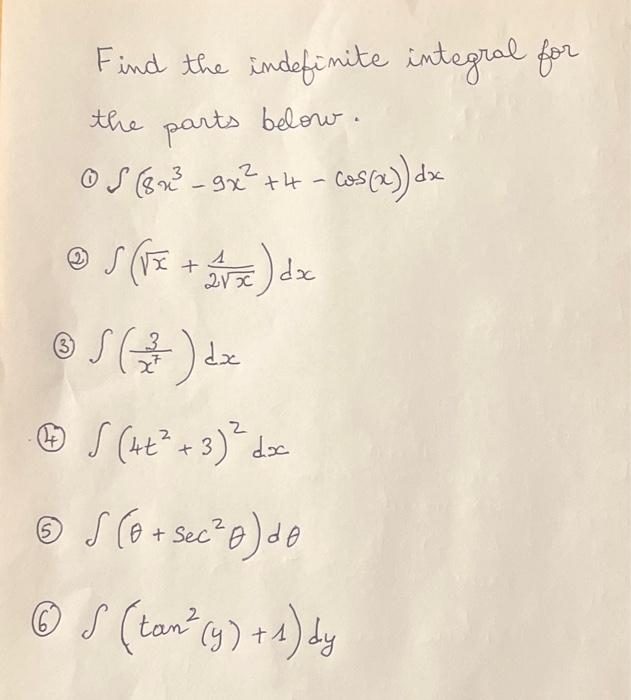 Find the indefinite integral for
the parts below.
① ∫(8x³ - 9x² + 4 - cos(x)) dx
② ∫(√x + 1/(2√x)) dx
③ ∫(3/x⁷) dx
④ ∫(4t² + 3)² dx
⑤ ∫(θ + sec²θ) dθ
⑥ ∫(tan²(y) + 1) dy